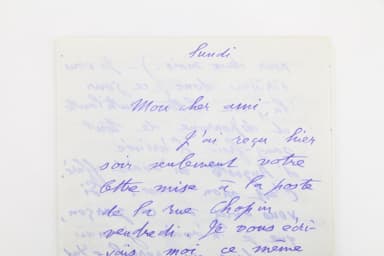 Lundi
Mon cher ami
J'ai reçu hier
soir seulement votre
lettre mise a la poste
de la rue Chopin
vendredi. Je vous écri-
vais moi, ce même